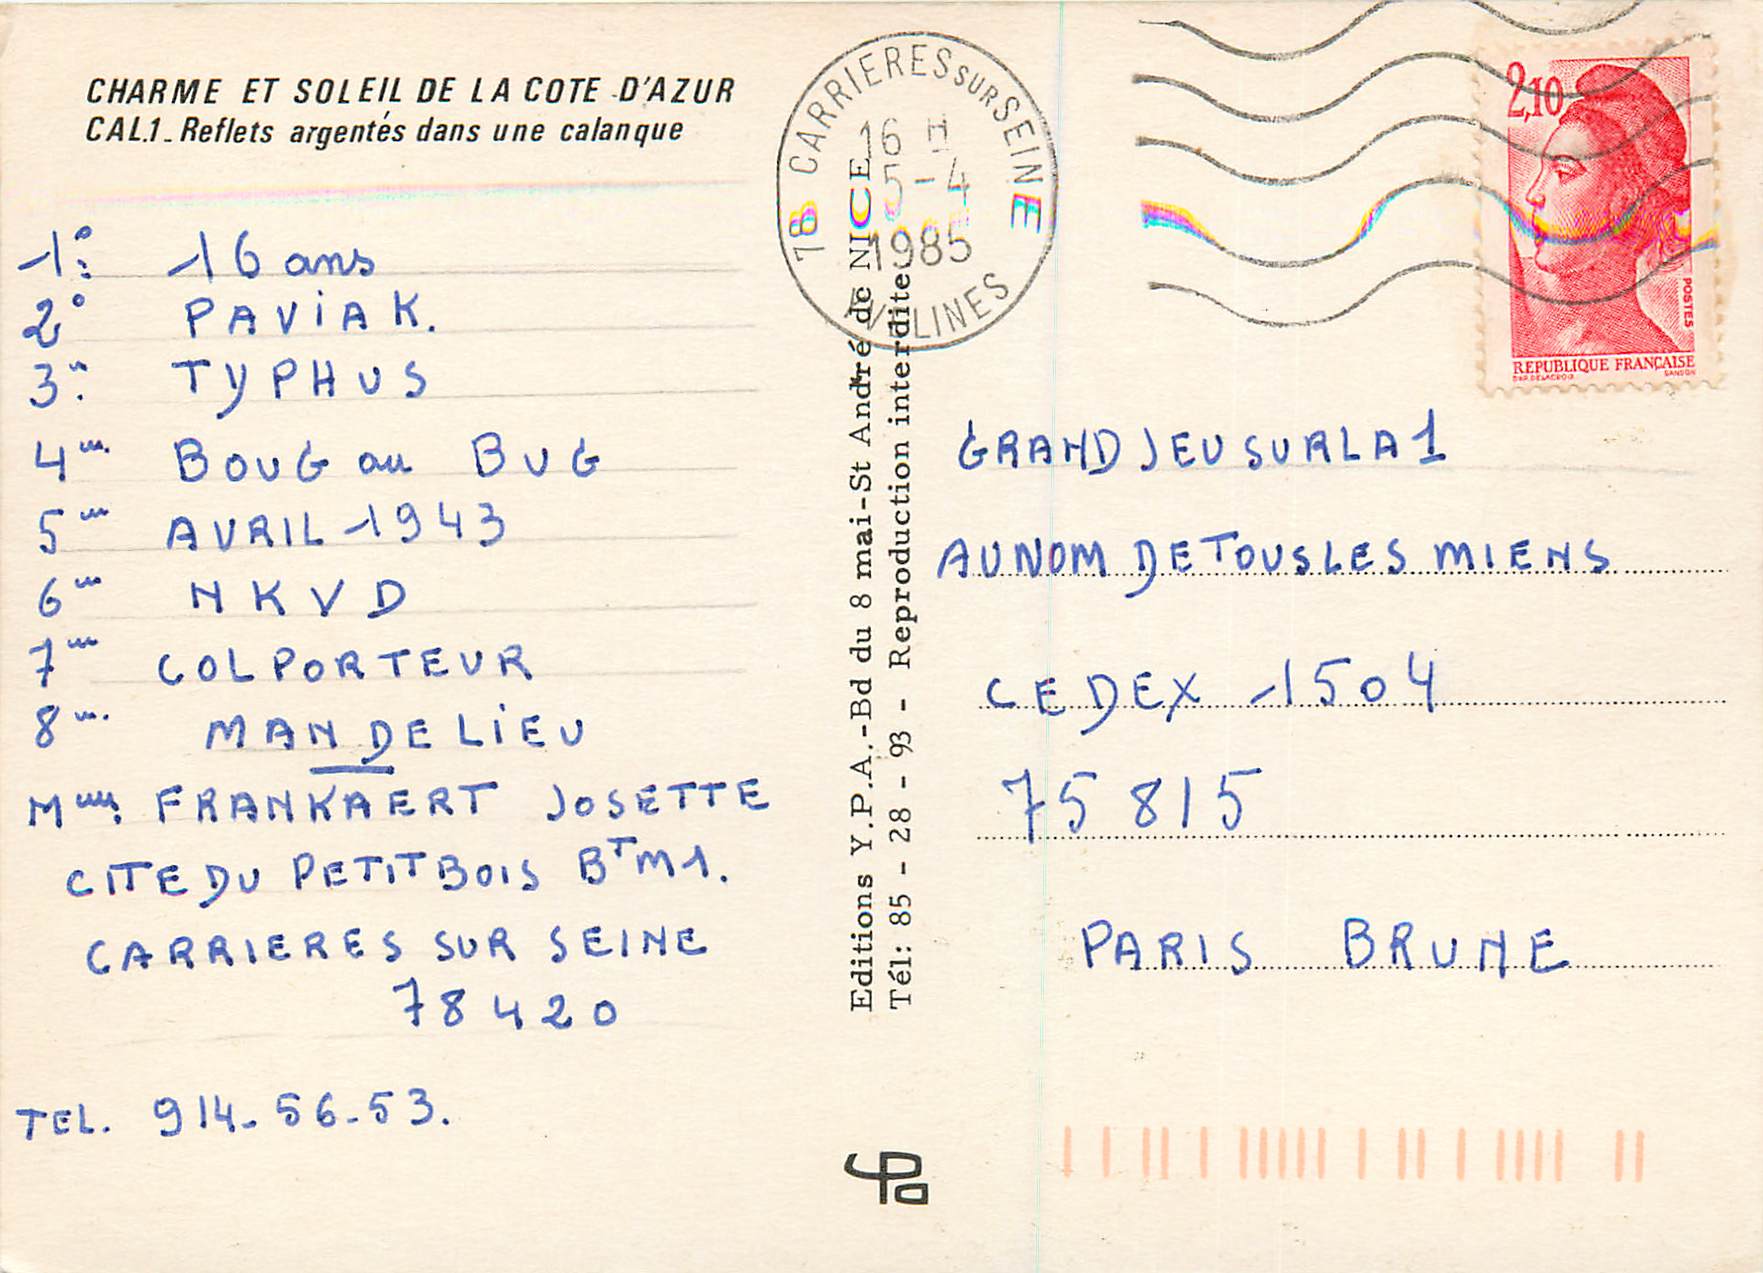 CHARME ET SOLEIL DE LA COTE D'AZUR
CAL.1 - Reflets argentés dans une calanque
1° 16 ans
2° PAVIAK.
3° TYPHUS
4em BOUG ou BUG
5em AVRIL 1943
6em NKVD
7em COLPORTEUR
8em MANDELIEU
Mme FRANKAERT JOSETTE
CITE DU PETIT BOIS BT M1.
CARRIERES SUR SEINE
78420
TEL. 914-56-53.
Editions Y.P.A.-Bd du 8 mai-St André de NICE
Tél: 85 - 28 - 93 - Reproduction interdite
78 CARRIERES SUR SEINE
16 H
5-4
1985
YVELINES
2,10
POSTES
REPUBLIQUE FRANÇAISE
D'AP. DELACROIX GANDON
GRAND JEU SUR LA 1
AU NOM DE TOUS LES MIENS
CEDEX 1504
75 815
PARIS BRUNE